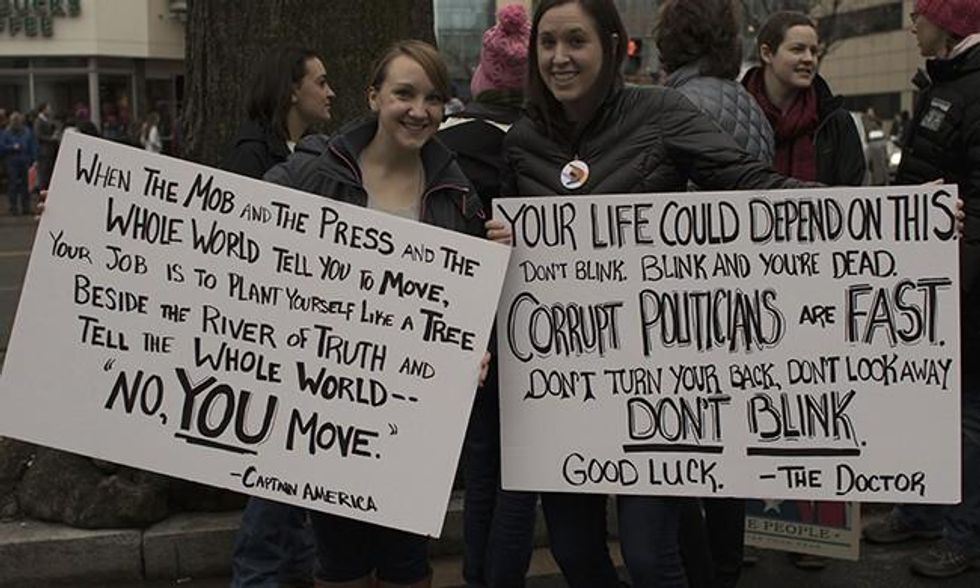 WHEN THE MOB AND THE PRESS AND THE
WHOLE WORLD TELL YOU TO MOVE,
YOUR JOB IS TO PLANT YOURSELF LIKE A TREE
BESIDE THE RIVER OF TRUTH AND
TELL THE WHOLE WORLD--
"NO, YOU MOVE."
-CAPTAIN AMERICA
YOUR LIFE COULD DEPEND ON THIS.
DON'T BLINK. BLINK AND YOU'RE DEAD.
CORRUPT POLITICIANS ARE FAST.
DON'T TURN YOUR BACK, DONT LOOK AWAY
DON'T BLINK.
GOOD LUCK. -THE DOCTOR
E PEOPLE